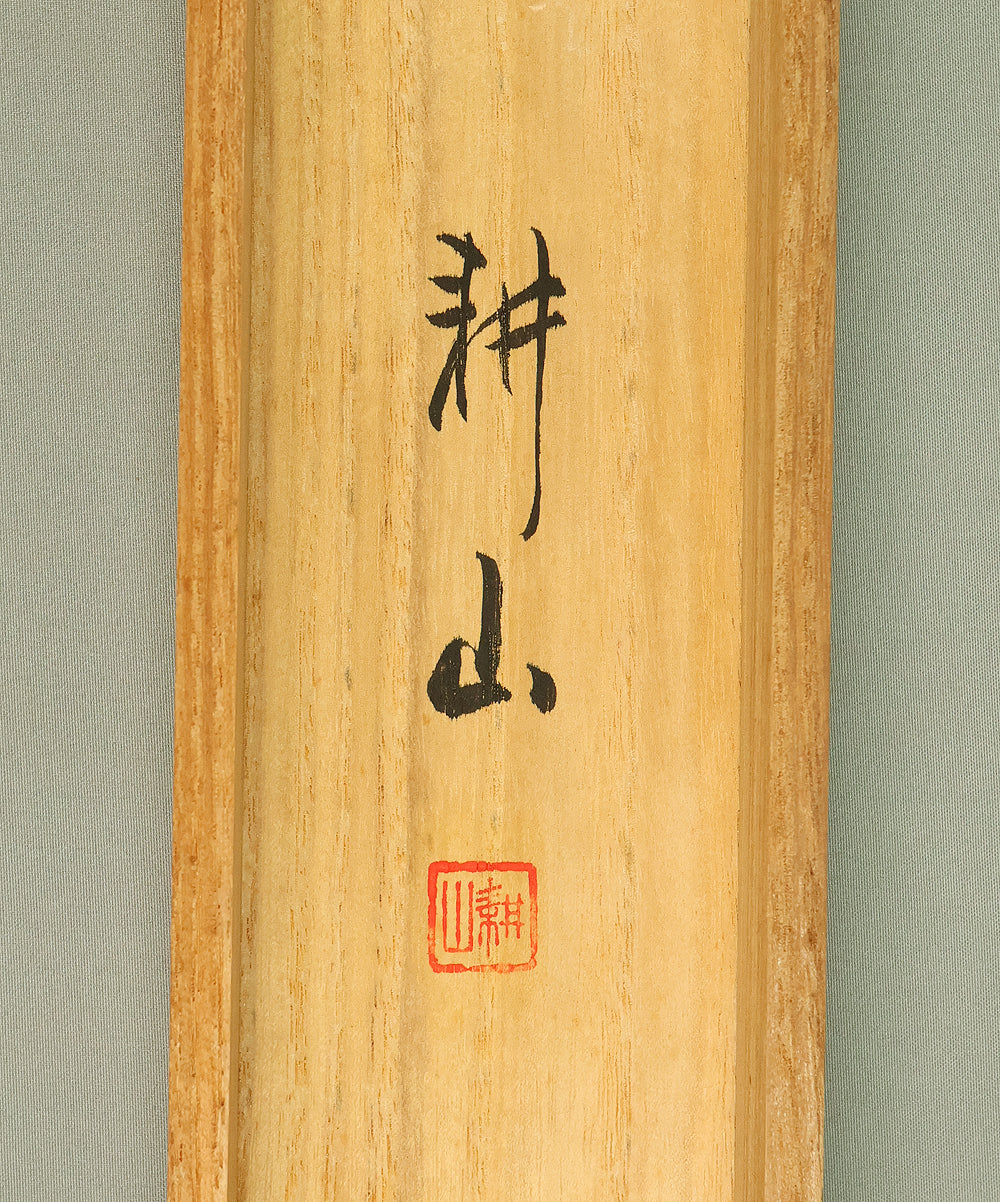 耕山
耕山